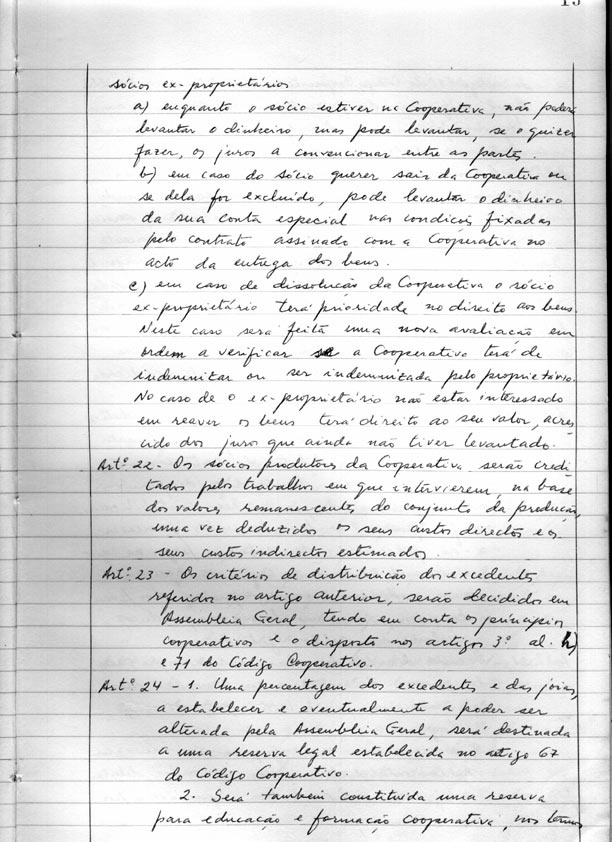 15
sócios ex-proprietários
a) enquanto o sócio estiver na Cooperativa, não poderá
levantar o dinheiro, mas pode levantar, se o quizer
fazer, os juros a convencionar entre as partes.
b) em caso do sócio querer sair da Cooperativa ou
se dela for excluído, pode levantar o dinheiro
da sua conta especial nas condições fixadas
pelo contrato assinado com a Cooperativa no
acto da entrega dos bens.
c) em caso de dissolução da Cooperativa o sócio
ex-proprietário terá prioridade no direito aos bens.
Neste caso será feita uma nova avaliação em
ordem a verificar se a Cooperativa terá de
indemnizar ou ser indemnizada pelo proprietário.
No caso de o ex-proprietário não estar interessado
em reaver os bens terá direito ao seu valor, acres
cido dos juro que ainda não tiver levantado.
Artº 22 - Os sócios produtores da Cooperativa serão credi
tados pelos trabalhos em que intervierem, na base
dos valores remanescentes do conjunto da produção,
uma vez deduzidos os seus custos directos e os
seus custos indirectos estimados.
Artº 23 - Os critérios de distribuição dos excedentes
referidos no artigo anterior, serão decididos em
Assembleia Geral, tendo em conta os princípios
cooperativos e o disposto nos artigos 3º al. h)
e 71 do Código Cooperativo.
Artº 24 - 1. Uma percentagem dos excedentes e das joias,
a estabelecer e eventualmente a poder ser
alterada pela Assembleia Geral, será destinada
a uma reserva legal estabelecida no artigo 67
do Código Cooperativo.
2. Será também constituída uma reserva
para educação e formação cooperativa, nos termos